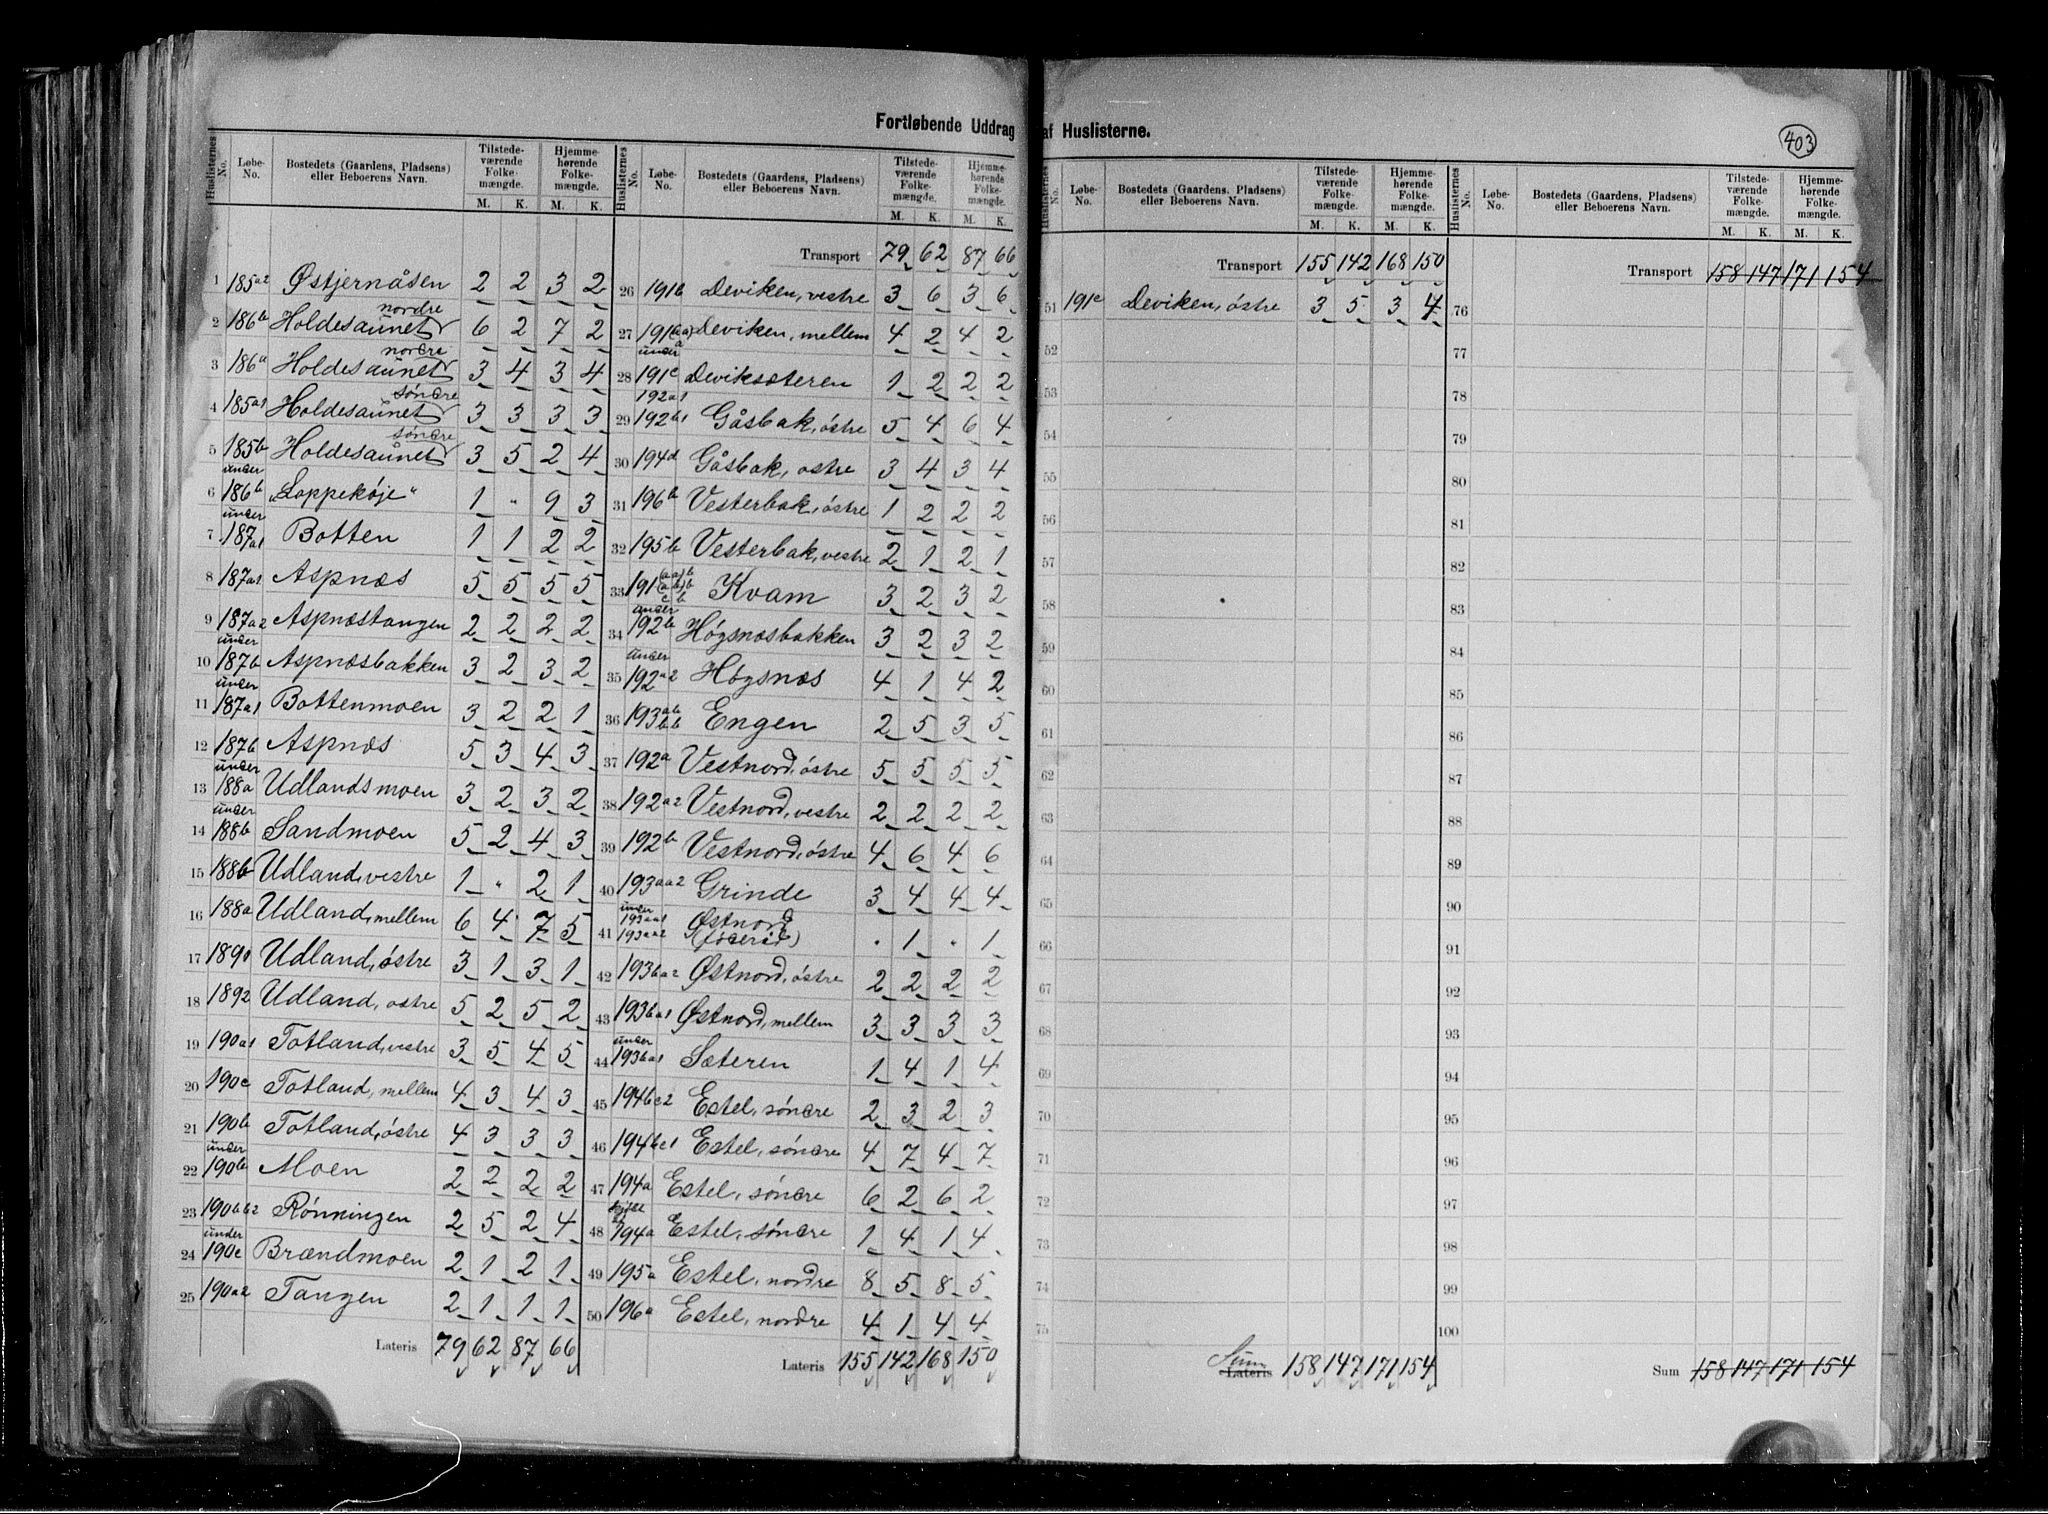 Fortløbende Uddrag af Huslisterne.
403
Huslisternes No. Løbe-No. Bostedets (Gaardens, Pladsens) eller Beboerens Navn. Tilstedeværende Folkemængde. M. K. Hjemmehørende Folkemængde. M. K.
1 185a2 Østjernåsen 2 2 3 2
2 186b Holdesaunet nordre 6 2 7 2
3 186a Holdesaunet nordre 3 4 3 4
4 185a1 Holdesaunet söndre 3 3 3 3
5 185b Holdesaunet söndre 3 5 2 4
6 under 186b "Loppekøje" 1 " 9 3
7 under 187a1 Botten 1 1 2 2
8 187a1 Aspnæs 5 5 5 5
9 187a2 Aspnæstangen 2 2 2 2
10 under 187b Aspnæsbakken 3 2 3 2
11 under 187a1 Bottenmoen 3 2 2 1
12 187b Aspnæs 5 3 4 3
13 under 188a Udlandsmoen 3 2 3 2
14 under 188b Sandmoen 5 2 4 3
15 188b Udland, vestre 1 " 2 1
16 188a Udland, mellem 6 4 7 5
17 1891 Udland, østre 3 1 3 1
18 1892 Udland, østre 5 2 5 2
19 190a1 Totland, vestre 3 5 4 5
20 190c Totland, mellem 4 3 4 3
21 190b Totland, østre 4 3 3 3
22 under 190b Moen 2 2 2 2
23 190bb2 Rönningen 2 5 2 4
24 under 190c Brændmoen 2 1 2 1
25 190a2 Tangen 2 1 1 1
Lateris 79 62 87 66
Huslisternes No. Løbe-No. Bostedets (Gaardens, Pladsens) eller Beboerens Navn. Tilstedeværende Folkemængde. M. K. Hjemmehørende Folkemængde. M. K.
Transport 79 62 87 66
26 191b Deviken, vestre 3 6 3 6
27 191 Deviken, mellem 4 2 4 2
28 under 191c Deviksæteren 1 2 2 2
29 192a1 192b1 Gåsbak, østre 5 4 6 4
30 194d Gåsbak, østre 3 4 3 4
31 196b Vesterbak, østre 1 2 2 2
32 195b Vesterbak, vestre 2 1 2 1
33 191 Kvam 3 2 3 2
34 under 192b Høgsnæsbakken 3 2 3 2
35 under 192a2 Høgsnæs 4 1 4 2
36 193ab bb Engen 2 5 3 5
37 192a Vestnord, østre 5 5 5 5
38 192a2 Vestnord, vestre 2 2 2 2
39 192b Vestnord, østre 4 6 4 6
40 193aa2 Grinde 3 4 4 4
41 under 193aa1 193aa2 Østnord (föderåd) " 1 " 1
42 193ba2 Østnord, østre 2 2 2 2
43 193ba1 Østnord, mellem 3 3 3 3
44 under 193ba1 Sæteren 1 4 1 4
45 194bc2 Estel, söndre 2 3 2 3
46 194bc1 Estel, söndre 4 7 4 7
47 194a Estel, söndre 6 2 6 2
48 194a Estel, söndre 1 4 1 4
49 195a Estel, nordre 8 5 8 5
50 196a Estel, nordre 4 1 4 4
Lateris 155 142 168 150
Huslisternes No. Løbe-No. Bostedets (Gaardens, Pladsens) eller Beboerens Navn. Tilstedeværende Folkemængde. M. K. Hjemmehørende Folkemængde. M. K.
Transport 155 142 168 150
51 191c Deviken, östre 3 5 3 4
52
53
54
55
56
57
58
59
60
61
62
63
64
65
66
67
68
69
70
71
72
73
74
75
Sum
Lateris 158 147 171 154
Huslisternes No. Løbe-No. Bostedets (Gaardens, Pladsens) eller Beboerens Navn. Tilstedeværende Folkemængde. M. K. Hjemmehørende Folkemængde. M. K.
Transport 158 147 171 154
76
77
78
79
80
81
82
83
84
85
86
87
88
89
90
91
92
93
94
95
96
97
98
99
100
Sum 158 147 171 154